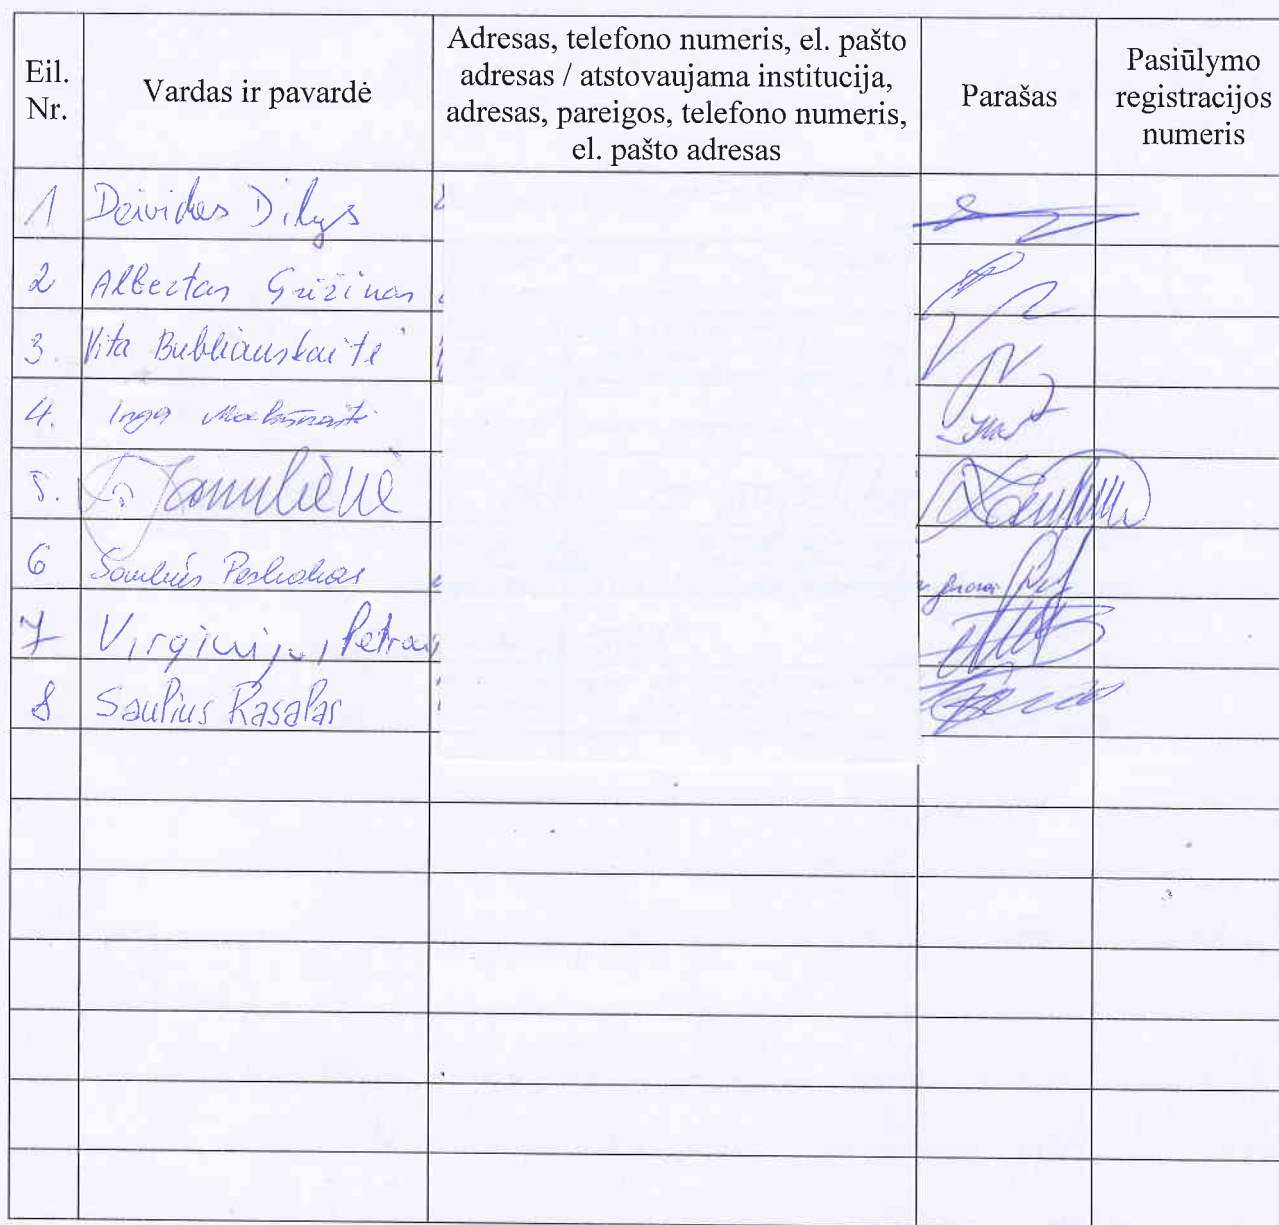 Eil.
Nr.
Vardas ir pavardė
Adresas, telefono numeris, el. pašto
adresas / atstovaujama institucija,
adresas, pareigos, telefono numeris,
el. pašto adresas
Parašas
Pasiūlymo
registracijos
numeris
1 Deividas Dilys
2 Albertas Grižinas
3. Vita Bubliauskaitė
4. Inga
5.
6 Saulius
7 Virginijus Petrau
8 Saulius Rasalas